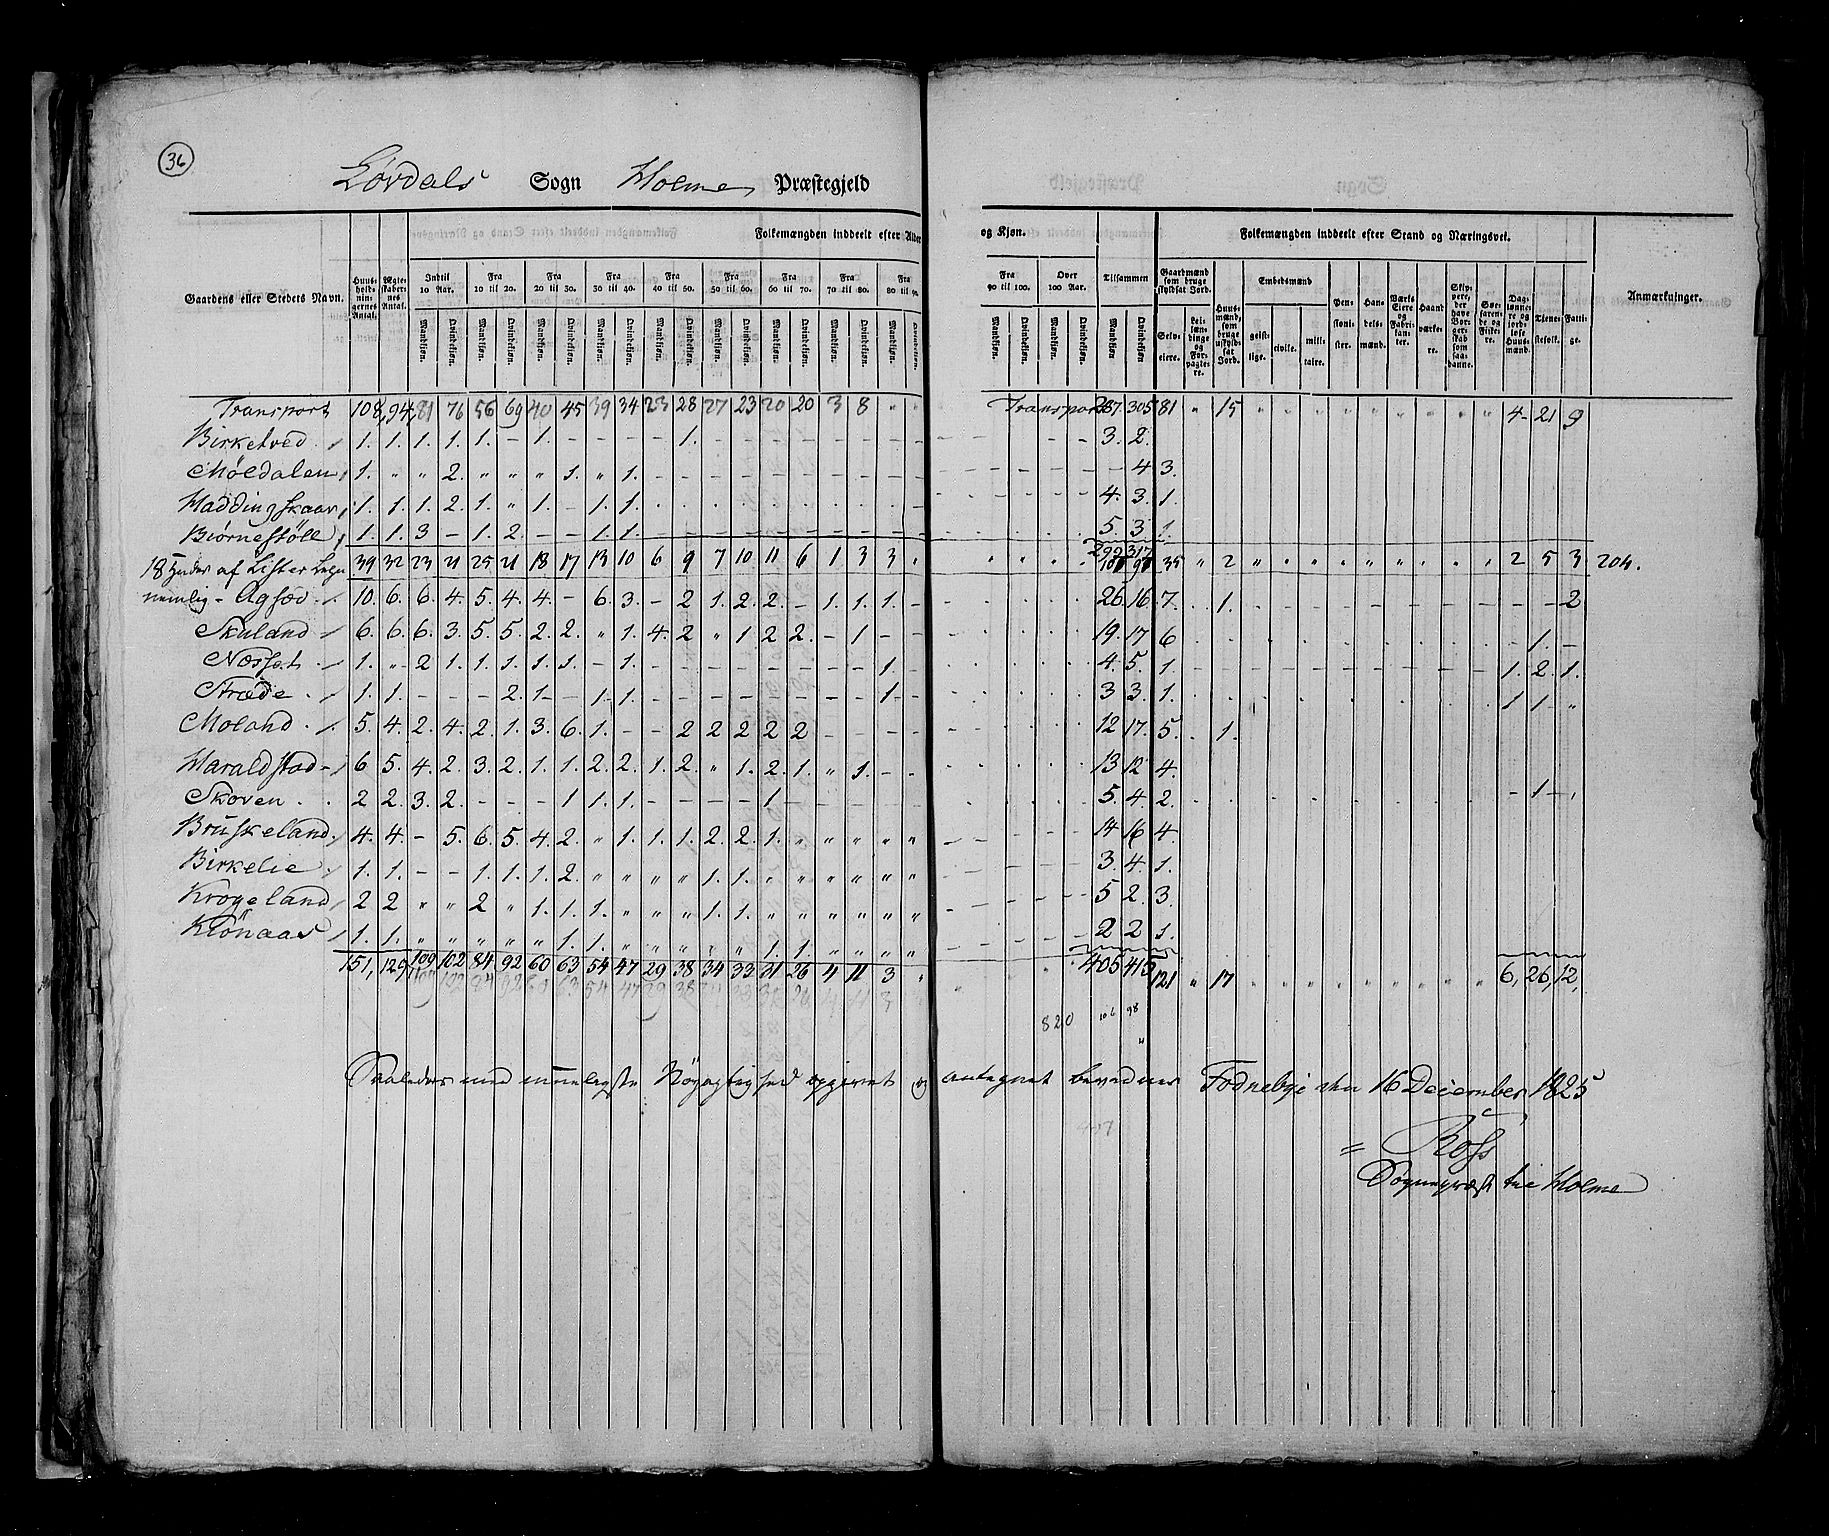 36
Løvdals Sogn Holme Præstegjeld
Folkemængden inddeelt efter Alder og Kjøn. Folkemængden inddeelt efter Stand og Næringsvei.
Gaardens eller Stedets Navn. Huusholdningernes Antal. Ægteskabernes Antal. Indtil 10 Aar. Fra 10 til 20. Fra 20 til 30. Fra 30 til 40. Fra 40 til 50. Fra 50 til 60. Fra 60 til 70. Fra 70 til 80. Fra 80 til 90. Fra 90 til 100. Over 100 Aar. Tilsammen Gaardmænd som bruge skyldsat Jord. Huusmænd, som bruge uskyldsat Jord. Embedsmænd Pensionister. Handelsmænd. Værks Eiere og Fabrikanter. Haandværkere. Skippere, der have Borgerskab som saadanne. Søefarende og Fiskere. Daglønnere og jordløse Huusmænd. Tjenestefolk. Fattige. Anmærkninger.
Mandkjøn. Qvindekjøn. Selveiere. Leilændinge og Forpagtere. geistlige. civile. militaire.
Transport 108, 94, 81 76 56 69 40 45 39 34 23 28 27 23 20 20 3 8 " " Transport 287. 305 81 " 15 " " " " " " " " " 4 21 9
Birketved 1. 1. 1. 1. 1. – 1. – – – – 1. – – – 3. 2.
Møldalen 1. " " 2. " " " 1. " 1. – – – – 4 3.
Haddingskaar 1. 1. 1. 2. 1. " 1. – 1. 1. 4. 3. 1.
Biørnestøll 1. 1. 3 – 1. 2. – – 1. 1. – – – 5. 3 1.
292 317
18 af Lister Lehn 39 32 23 21 25 21 18 17 13 10 6 9 7 10 11 6 1 3 3 " 35 " 2 " " " " " " " " " 2 5 3 204.
nemlig – Agsed 10. 6. 6. 4. 5. 4. 4. – 6. 3. – 2 1. 2. 2. – 1. 1. 1. – 26 16. 7. 1. – – 2
Skuland 6. 6. 6. 3. 5. 5. 2. 2. " 1. 4. 2 " 1 2 2. – 1 – – 19. 17. 6 1. –
Nøsset 1. " 2 1. 1. 1. 1. 1. – 1. – – – – – – – – 1. – 4. 5. 1. 1. 2. 1.
Stræde 1. 1. – – – 2. 1 – 1. 1. – – – – – – – – 1 – 3 3. 1. 1 1 – "
Moland 5. 4. 2. 4. 2. 1. 3. 6. 1. – – 2 2 2 2 2 – – – – 12 17. 5. 1.
Haraldstad 6 5. 4. 2. 3. 2. 1. 1. 2. 2. 1. 2. " 1. 2. 1. " 1. – – 13 12 4.
Skoven 2 2. 3. 2. – – – 1 1. 1. – – – – 1 – – – – – 5. 4. 2. – 1 –
Bruskeland 4. 4. – 5. 6. 5. 4. 2. " 1. 1. 1. 2. 2. 1. " " " " " 14 16 4.
Birkelie 1. 1. – – 1. 1. 1. 2. " " " " 1. 1. " " " " " " 3. 4. 1.
Krogeland 2 2 " " 2 " 1. 1. 1. " " " 1. 1. " " " " " " 5 2. 3.
Klønaas 1. 1. " " " " " 1. 1. " " " " " 1. 1. " " " " 2 2 1.
151, 129, 109 102 84 92 60 63 54 47 29 38 34 33 31 26 4 11 3 " 405 415 121 " 17 " " " " " " " " " 6, 26, 12,
820 106 98
Saaledes med Nøyagtighed opgivet og antegnet bevidner Fodnebye den 16 December 1825
Ross
Sognepræst til Holme